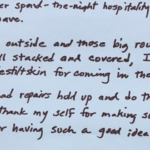 er spend-the-night hospitality
ave.
outside and those big rou
ll stacked and covered, I
for coming in the
ad repairs hold up and do th
thank my self for making su
r having such a good idea